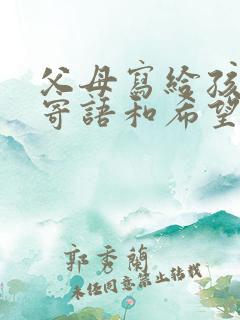 父母寫給孩
寄語和希望
郭秀蘭
未任同意禁止转载